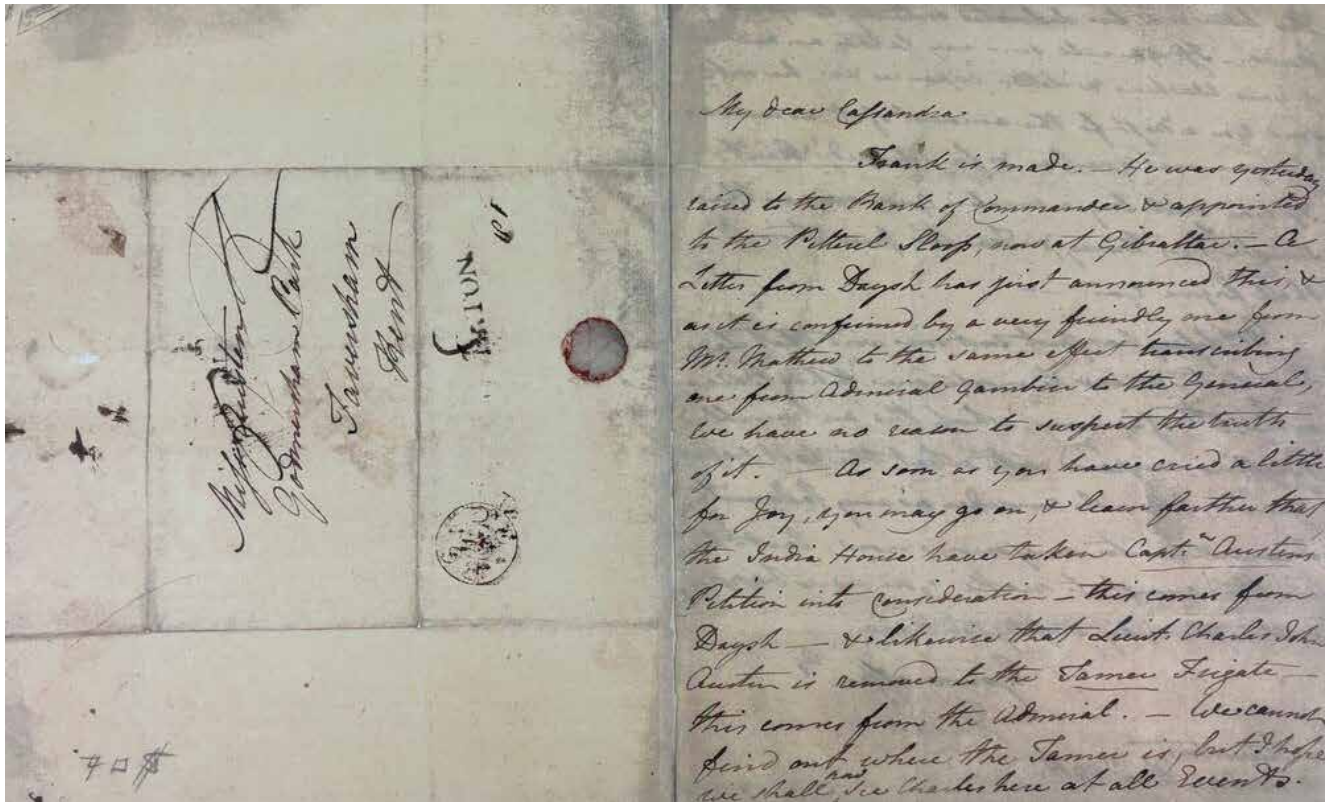 Miss Austen
Godmersham Park
Faversham
Kent
My dear Cassandra
Frank is made. — He was yesterday
raised to the Rank of Commander & appointed
to the Petterel Sloop, now at Gibraltar. — A
Letter from Daysh has just announced this, &
as it is confirmed by a very friendly one from
Mr. Mathew to the same effect transcribing
one from Admiral Gambier to the General,
We have no reason to suspect the truth
of it. — As soon as you have cried a little
for Joy, you may go on, & learn farther that
the India House have taken Captn. Austens
Petition into Consideration — this comes from
Daysh — & likewise that Lieut. Charles John
Austen is removed to the Tamer Frigate —
this comes from the Admiral. — We cannot
find out where the Tamer is, but I hope
we shall now see Charles here at all Events.